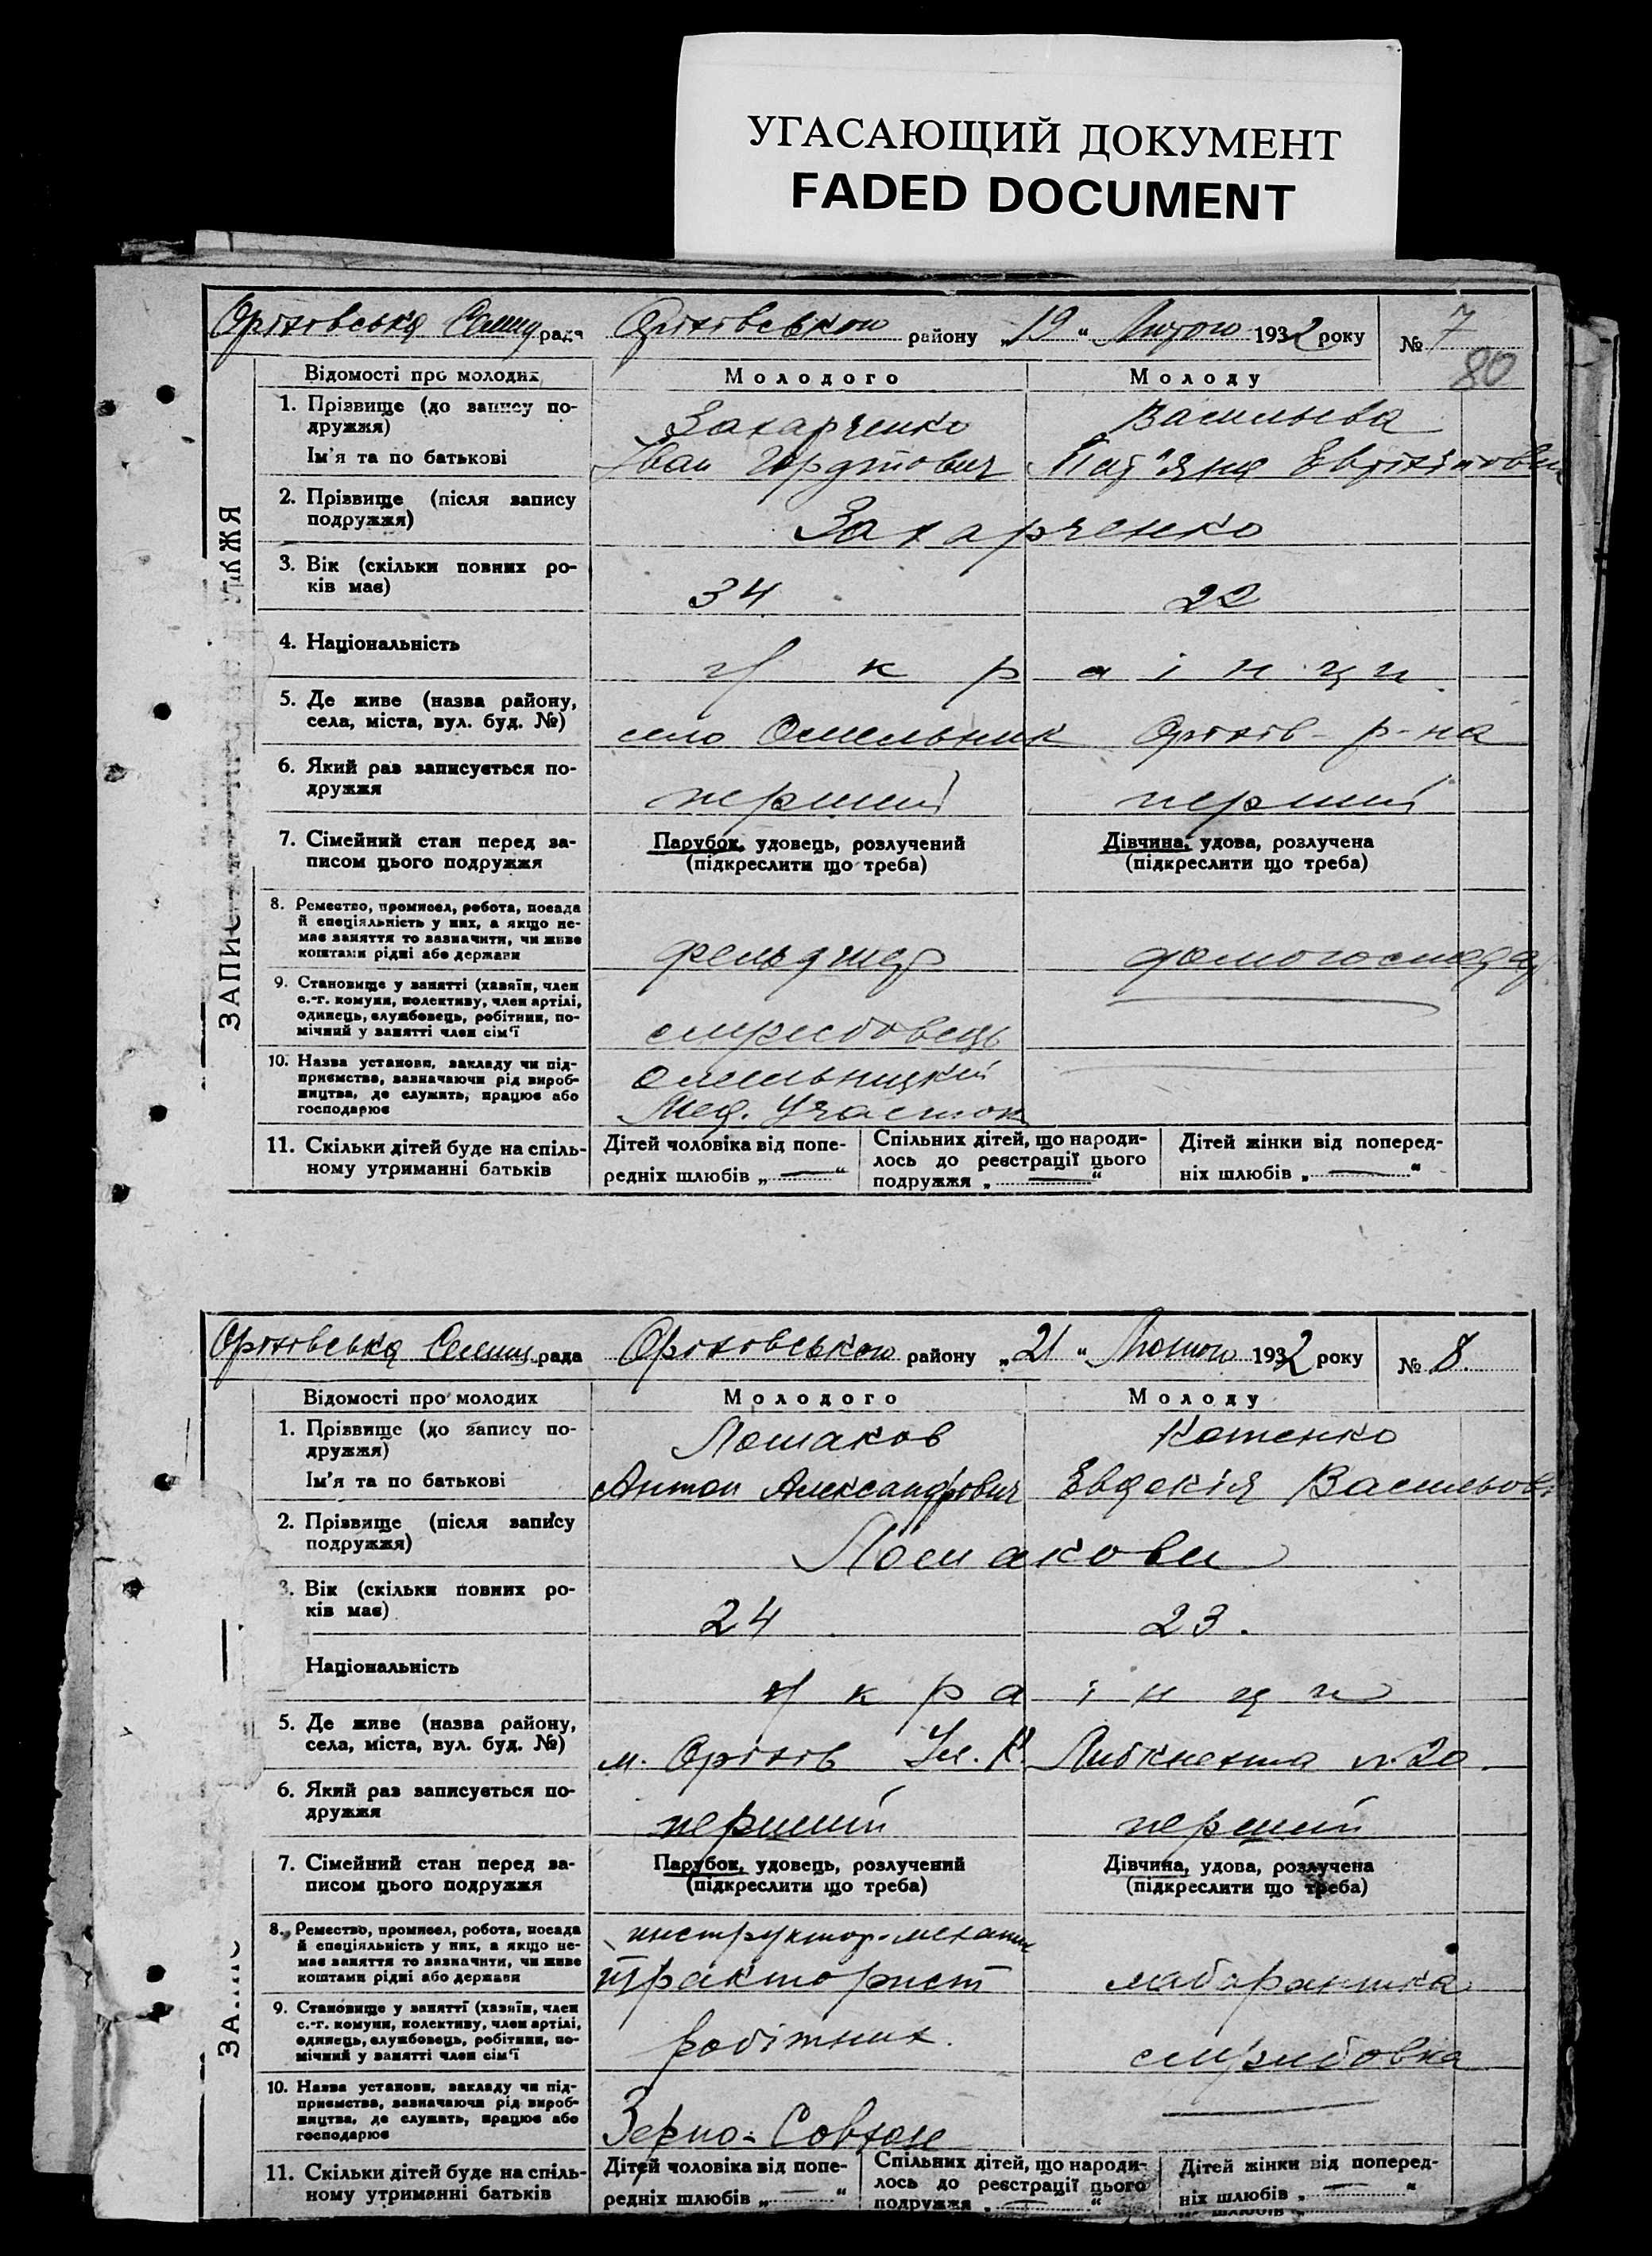 УГАСАЮЩИЙ ДОКУМЕНТ
FADED DOCUMENT
Оріхівська Селищ рада Оріхівського району „19“ Лютого 1932 року № 7
80
Відомості про молодих Молодого Молоду
1. Прізвище (до запису по-
дружжя) Захарченко Васильева
Ім'я та по батькові Іван Тат'яна
2. Прізвище (після запису
подружжя) Захарченко
3. Вік (скільки повних ро-
ків має) 34 22
4. Національність українци
5. Де живе (назва району,
села, міста, вул. буд. №) село Омельник Оріхів - р-на
6. Який раз записується по-
дружжя перший перший
7. Сімейний стан перед за-
писом цього подружжя
Парубок, удовець, розлучений Дівчина, удова, розлучена
(підкреслити що треба) (підкреслити що треба)
8. Ремество, промисел, робота, посада
й спеціяльність у них, а якщо не-
має заняття то зазначити, чи живе
коштами рідні або держави
фельдшер домогоспод
9. Становище у занятті (хазяїн, член
с.-г. комуни, колективу, член артілі,
одинець, службовець, робітник, по-
мічний у занятті член сім'ї
службовець
10. Назва установи, закладу чи під-
приємства, зазначаючи рід вироб-
ництва, де служить, працює або
господарює
Омельницкий
Мед. Участок
11. Скільки дітей буде на спіль-
ному утриманні батьків
Дітей чоловіка від попе-
редніх шлюбів „—“
Спільних дітей, що народи-
лось до реєстрації цього
подружжя „—“
Дітей жінки від поперед-
ніх шлюбів „—“
Оріхівська Селищ рада Оріхівського району „21“ Лютого 1932 року № 8.
Відомості про молодих Молодого Молоду
1. Прізвище (до запису по-
дружжя) Ломаков Котенко
Ім'я та по батькові Антон Александрович Евдокія Васильов
2. Прізвище (після запису
подружжя) Ломакови
3. Вік (скільки повних ро-
ків має) 24 23.
Національність українци
5. Де живе (назва району,
села, міста, вул. буд. №) м. Оріхів Ул. К. Либкнехта №20.
6. Який раз записується по-
дружжя перший перший
7. Сімейний стан перед за-
писом цього подружжя
Парубок, удовець, розлучений Дівчина, удова, розлучена
(підкреслити що треба) (підкреслити що треба)
8. Ремество, промисел, робота, посада
й спеціяльність у них, а якщо не-
має заняття то зазначити, чи живе
коштами рідні або держави
инструктор-механик
тракторист лаборантка
9. Становище у занятті (хазяїн, член
с.-г. комуни, колективу, член артілі,
одинець, службовець, робітник, по-
мічний у занятті член сім'ї
робітник. службовка
10. Назва установи, закладу чи під-
приємства, зазначаючи рід вироб-
ництва, де служать, працює або
господарює
Зерно-Совхозе
11. Скільки дітей буде на спіль-
ному утриманні батьків
Дітей чоловіка від попе-
редніх шлюбів „—“
Спільних дітей, що народи-
лось до реєстрації цього
подружжя „—“
Дітей жінки від поперед-
ніх шлюбів „—“